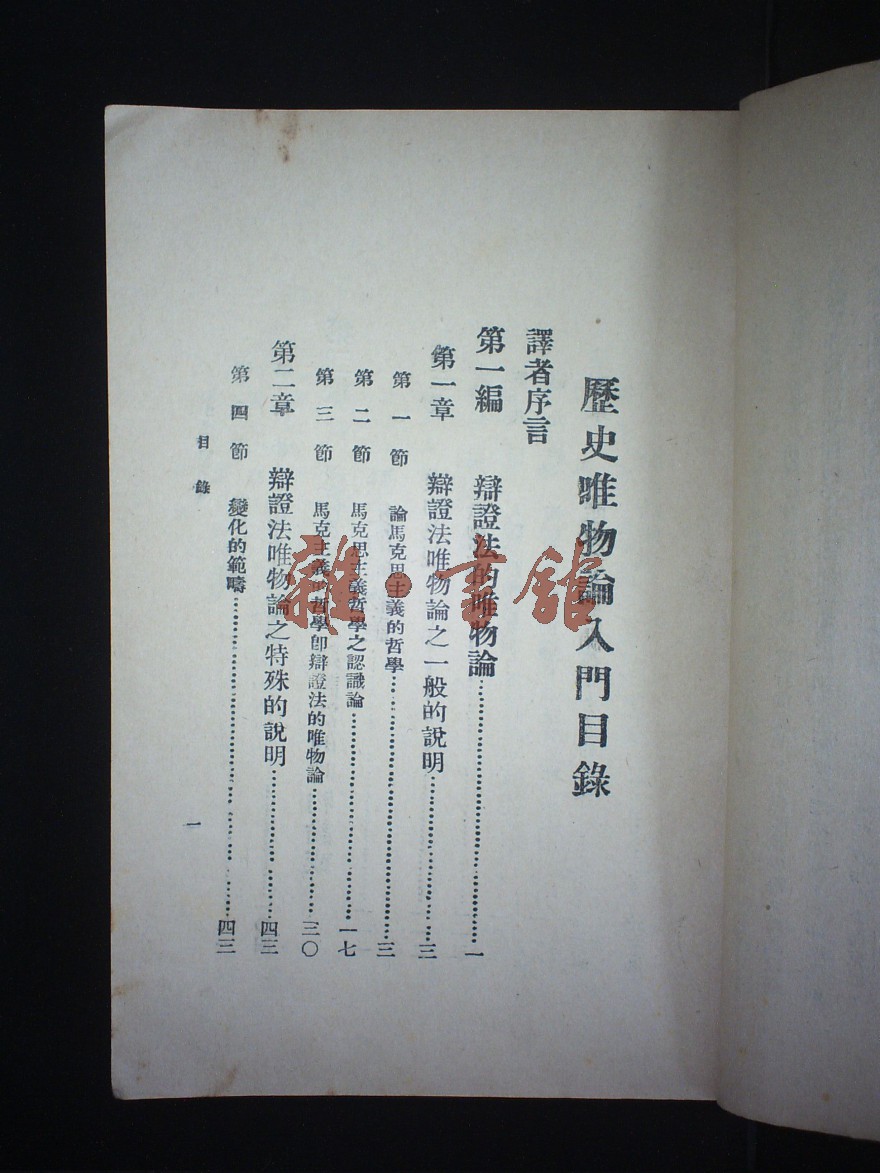 歷史唯物論入門目錄
譯者序言
第一編 辯證法的唯物論………一
第一章 辯證法唯物論之一般的說明………三
第一節 論馬克思主義的哲學………三
第二節 馬克思主義哲學之認識論………一七
第三節 馬克主義的哲學卽辯證法的唯物論………三〇
第二章 辯證法唯物論之特殊的說明………四三
第四節 變化的範疇………四三
目錄
一
雜·書館